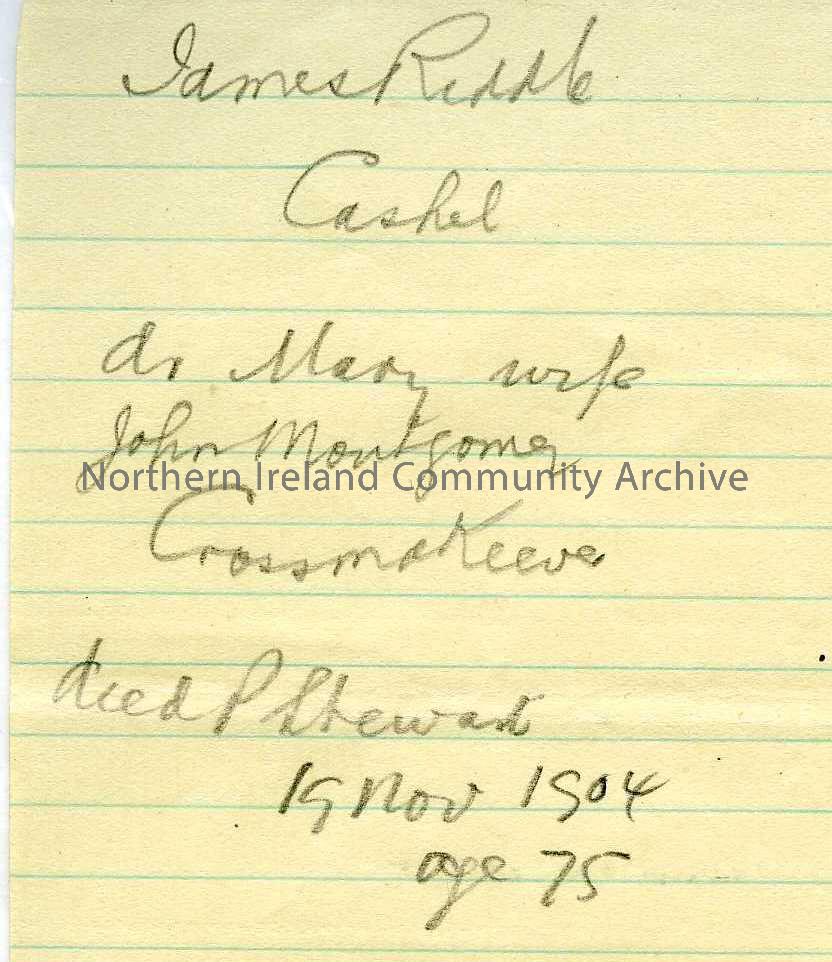 James Riddle
Cashel
dr Mary wife
John Montgomery
Northern Ireland Community Archive
Crossmakeever
died P Stewart
19 Nov 1904
age 75